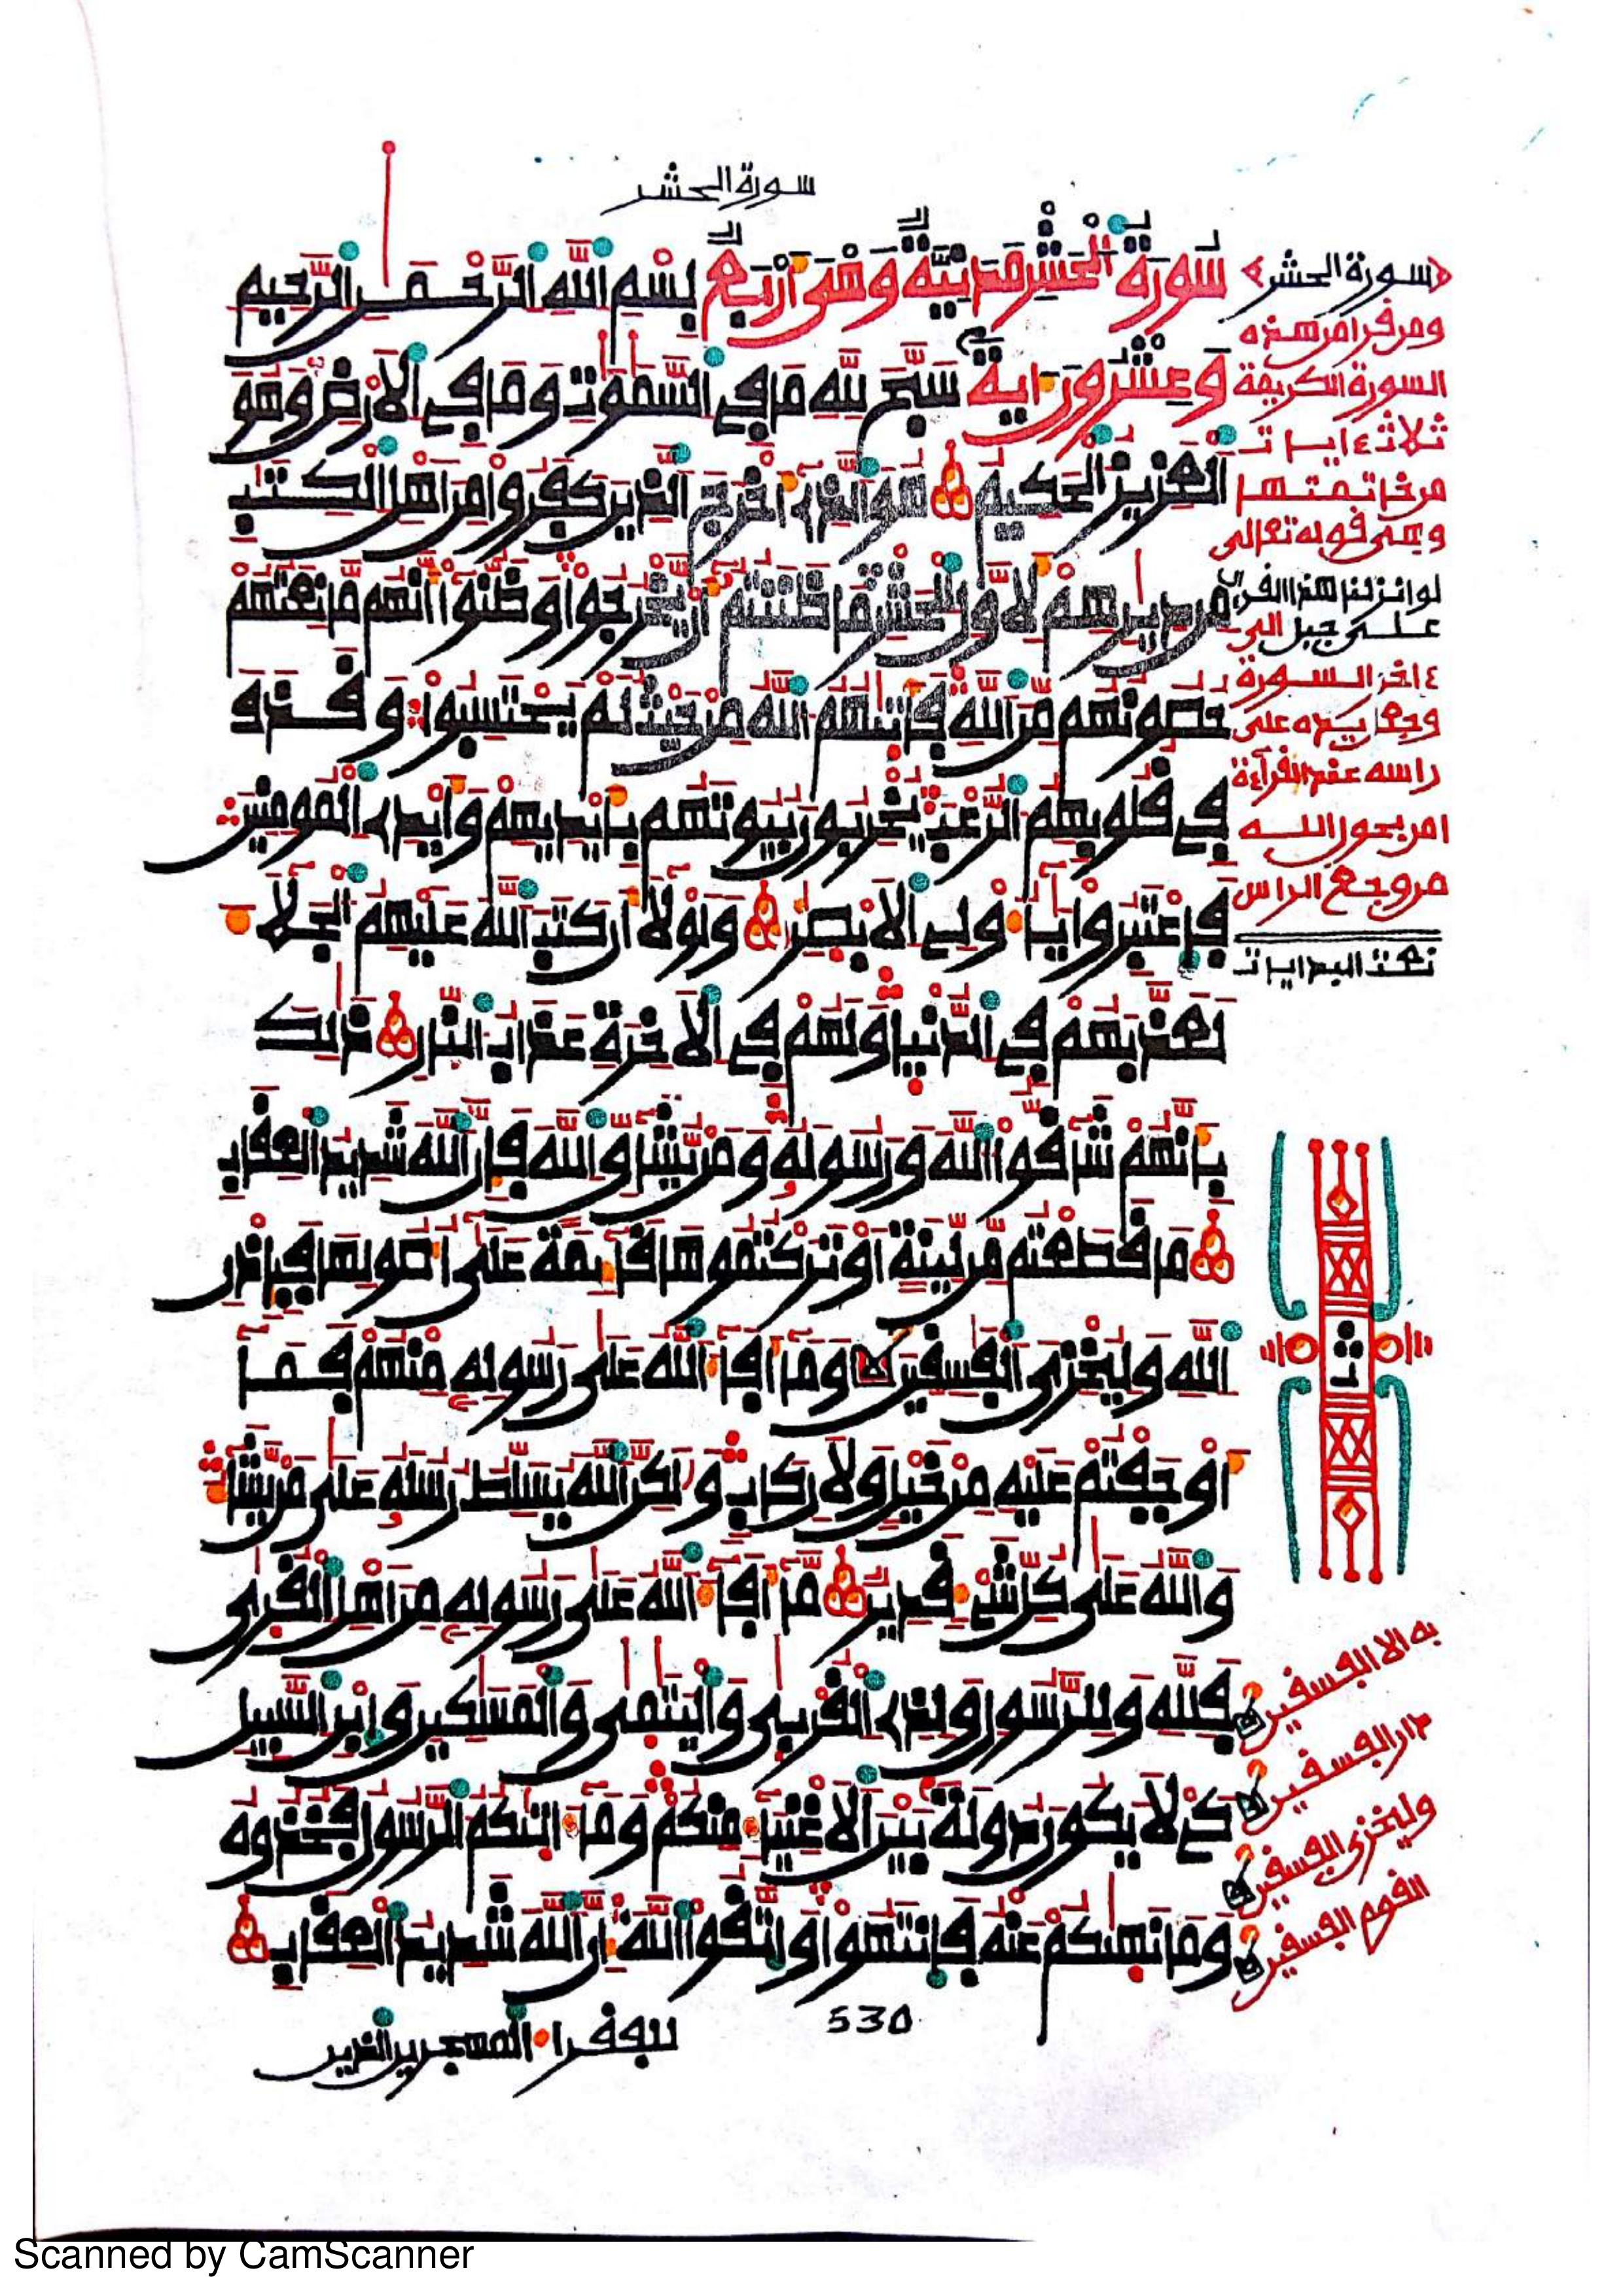 سورة الحشر
سُورَةُ الْحَشْرِ مَدَنِيَّةٌ وَهْيَ أَرْبَعٌ بِسْمِ اللَّهِ الرَّحْمَٰنِ الرَّحِيمِ
وَعِشْرُونَ ءَايَةً سَبَّحَ لِلَّهِ مَا فِي السَّمَٰوَٰتِ وَمَا فِي الْأَرْضِ وَهُوَ
الْعَزِيزُ الْحَكِيمُ هُوَ الَّذِي أَخْرَجَ الَّذِينَ كَفَرُوا مِنْ أَهْلِ الْكِتَٰبِ
مِن دِيَٰرِهِمْ لِأَوَّلِ الْحَشْرِ مَا ظَنَنتُمْ أَنْ يَّخْرُجُوا وَظَنُّوا أَنَّهُم مَّانِعَتُهُمْ
حُصُونُهُم مِّنَ اللَّهِ فَأَتَىٰهُمُ اللَّهُ مِنْ حَيْثُ لَمْ يَحْتَسِبُوا وَقَذَفَ
فِي قُلُوبِهِمُ الرُّعْبَ يُخْرِبُونَ بُيُوتَهُم بِأَيْدِيهِمْ وَأَيْدِي الْمُومِنِينَ
فَاعْتَبِرُوا يَٰأُولِي الْأَبْصَٰرِ وَلَوْلَا أَن كَتَبَ اللَّهُ عَلَيْهِمُ الْجَلَاءَ
لَعَذَّبَهُمْ فِي الدُّنْيَا وَلَهُمْ فِي الْأَخِرَةِ عَذَابُ النَّارِ ذَٰلِكَ
بِأَنَّهُمْ شَاقُّوا اللَّهَ وَرَسُولَهُ وَمَنْ يُّشَاقِّ اللَّهَ فَإِنَّ اللَّهَ شَدِيدُ الْعِقَابِ
مَا قَطَعْتُم مِّن لِّينَةٍ أَوْ تَرَكْتُمُوهَا قَائِمَةً عَلَىٰ أُصُولِهَا فَبِإِذْنِ
اللَّهِ وَلِيُخْزِيَ الْفَٰسِقِينَ وَمَا أَفَاءَ اللَّهُ عَلَىٰ رَسُولِهِ مِنْهُمْ فَمَا
أَوْجَفْتُمْ عَلَيْهِ مِنْ خَيْلٍ وَلَا رِكَابٍ وَلَٰكِنَّ اللَّهَ يُسَلِّطُ رُسُلَهُ عَلَىٰ مَنْ يَّشَاءُ
وَاللَّهُ عَلَىٰ كُلِّ شَيْءٍ قَدِيرٌ مَّا أَفَاءَ اللَّهُ عَلَىٰ رَسُولِهِ مِنْ أَهْلِ الْقُرَىٰ
فَلِلَّهِ وَلِلرَّسُولِ وَلِذِي الْقُرْبَىٰ وَالْيَتَٰمَىٰ وَالْمَسَٰكِينِ وَابْنِ السَّبِيلِ
كَيْ لَا يَكُونَ دُولَةً بَيْنَ الْأَغْنِيَاءِ مِنكُمْ وَمَا ءَاتَىٰكُمُ الرَّسُولُ فَخُذُوهُ
وَمَا نَهَىٰكُمْ عَنْهُ فَانتَهُوا وَاتَّقُوا اللَّهَ إِنَّ اللَّهَ شَدِيدُ الْعِقَابِ
530
للفقراء المهجرين الذين
سورة الحشر
ومن قرا من هذه
السورة الكريمة
ثلاث ءايات
من خاتمتها
وهي قوله تعالى
لو انزلنا هذا القرءان
على جبل الى
ءاخر السورة
وجعل يده على
راسه عند القرآءة
امن بعون الله
من وجع الراس
نعت البدايات
ث
به الا الفسقين
دار الفسقين
وليخزي الفسقين
القوم الفسقين
Scanned by CamScanner